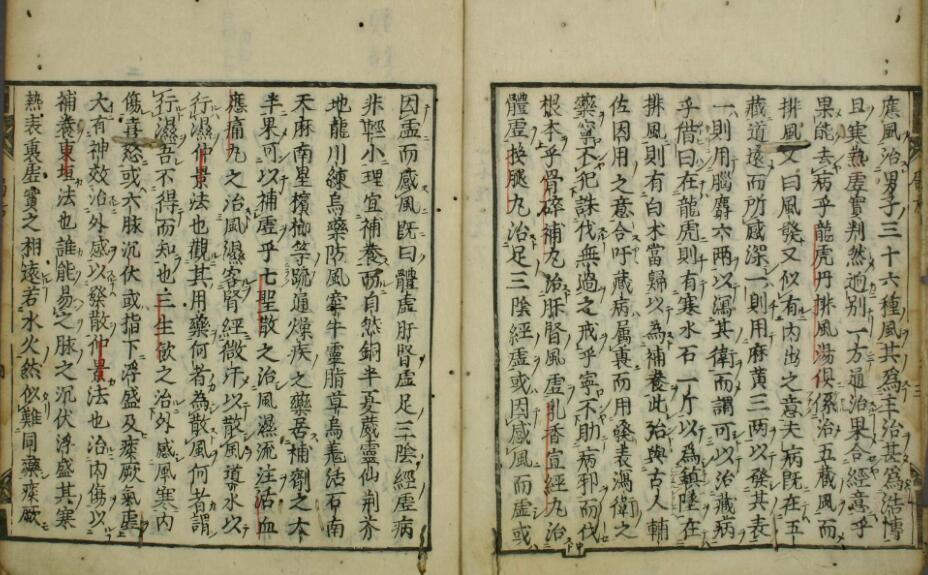 應風治男子三十六種風其爲主治甚爲浩博
且寒熱虛實判然逈别一方通治果合經意乎
果能去病乎龍虎丹排風湯俱係治五藏風而
排風又曰風發又似有内出之意夫病既在五
藏道遠而所感深一則用麻黄三两以發其表
一則用腦麝六两以瀉其衛而謂可以治藏病
乎借曰在龍虎則有寒水石一斤以爲鎮墜在
排風則有白术當歸以為補養此殆與古人輔
佐因用之意合吁藏病属裏而用發表瀉衛之
藥寧不犯誅伐無過之戒乎寧不助病邪而伐
根本乎骨碎補丸治肝腎風虛乳香宣經丸治
體虛換腿丸治足三陰經虛或因感風而虛或
因虛而感風既曰體虛肝腎虛足三陰經虛病
非輕小理宜補養而自然銅半夏威靈仙荆芥
地龍川練烏藥防風牽牛靈脂草烏羗活石南
天麻南星檳榔等疏通燥疾之藥居補劑之大
半果可以補虛乎七聖散之治風濕流注活血
應痛丸之治風濕客腎經微汗以散風導水以
行濕仲景法也觀其用藥何者為散風何者謂
行濕吾不得而知也三生飲之治外感風寒内
傷喜怒或六脉沉伏或指下浮盛及痰厥氣虛
大有神效治外感以發散仲景法也治内傷以
補養東垣法也誰能易之脉之沉伏浮盛其寒
熱表裏虛實之相遠若水火然似難同藥痰厥